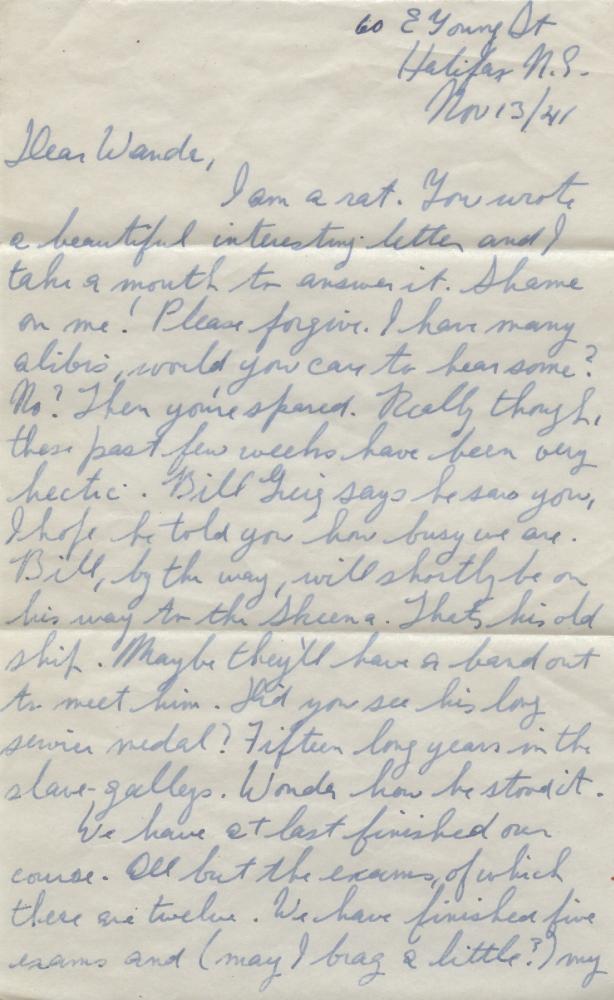 60 E Young St
Halifax N.S.
Nov 13/41
Dear Wanda,
I am a rat. You wrote
a beautiful interesting letter and I
take a month to answer it. Shame
on me! Please forgive. I have many
alibis, would you care to hear some?
No? Then you're spared. Really though,
these past few weeks have been very
hectic. Bill Greig says he saw you,
I hope he told you how busy we are.
Bill, by the way, will shortly be on
his way to the Skeena. That's his old
ship. Maybe they'll have a band out
to meet him. Did you see his long
service medal? Fifteen long years in the
slave-galleys. Wonder how he stood it.
We have at last finished our
course. All but the exams, of which
there are twelve. We have finished five
exams and (may I brag a little?) my